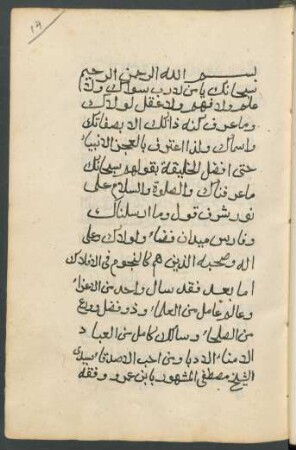 ١٣
بسم الله الرحمن الرحيم
سبحانك يا من لا رب سواك ولا
علم ولا فهم ولا عقل لولاك
وما عرف كنه ذاتك الا بصفاتك
واسماك ولذا اعترف بالعجز الانبياء
حتى افضل الخليقة بقولهم سبحانك
ما عرفناك والصلوة والسلام على
من شرف بقول وما ارسلناك
وفارس ميدان فضاء ولولاك وعلى
اله وصحبه الذين هم كالنجوم في الافلاك
اما بعد فقد سال واحد من الاعزاء
وعالم عامل من العلماء وذو فضل وورع
من الصلحاء وسالك كامل من العباد
الامناء الادباء ومن احب الاصدقاء سيدي
الشيخ مصطفى المشهور بابن عمرو وفقه